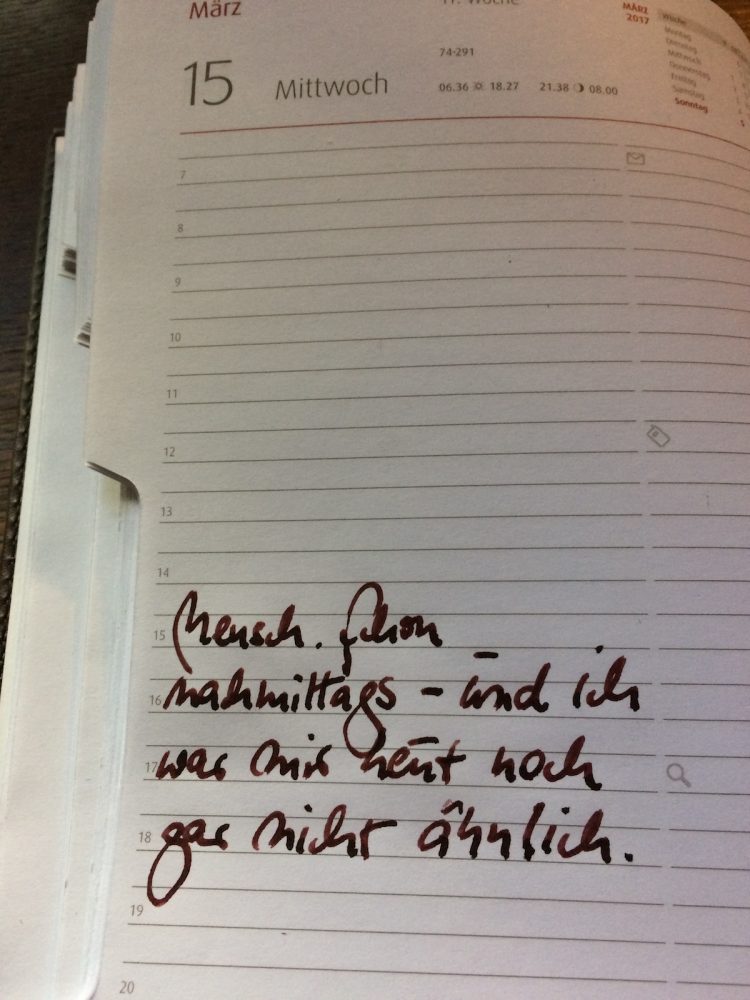 März
11. Woche
MÄRZ
2017
Woche
Montag
Dienstag
Mittwoch
Donnerstag
Freitag
Samstag
Sonntag
15 Mittwoch
74-291
06.36 18.27 21.38 08.00
7
8
9
10
11
12
13
14
15
Mensch. Schon
16
nachmittags – und ich
17
war mir heut noch
18
gar nicht ähnlich.
19
20